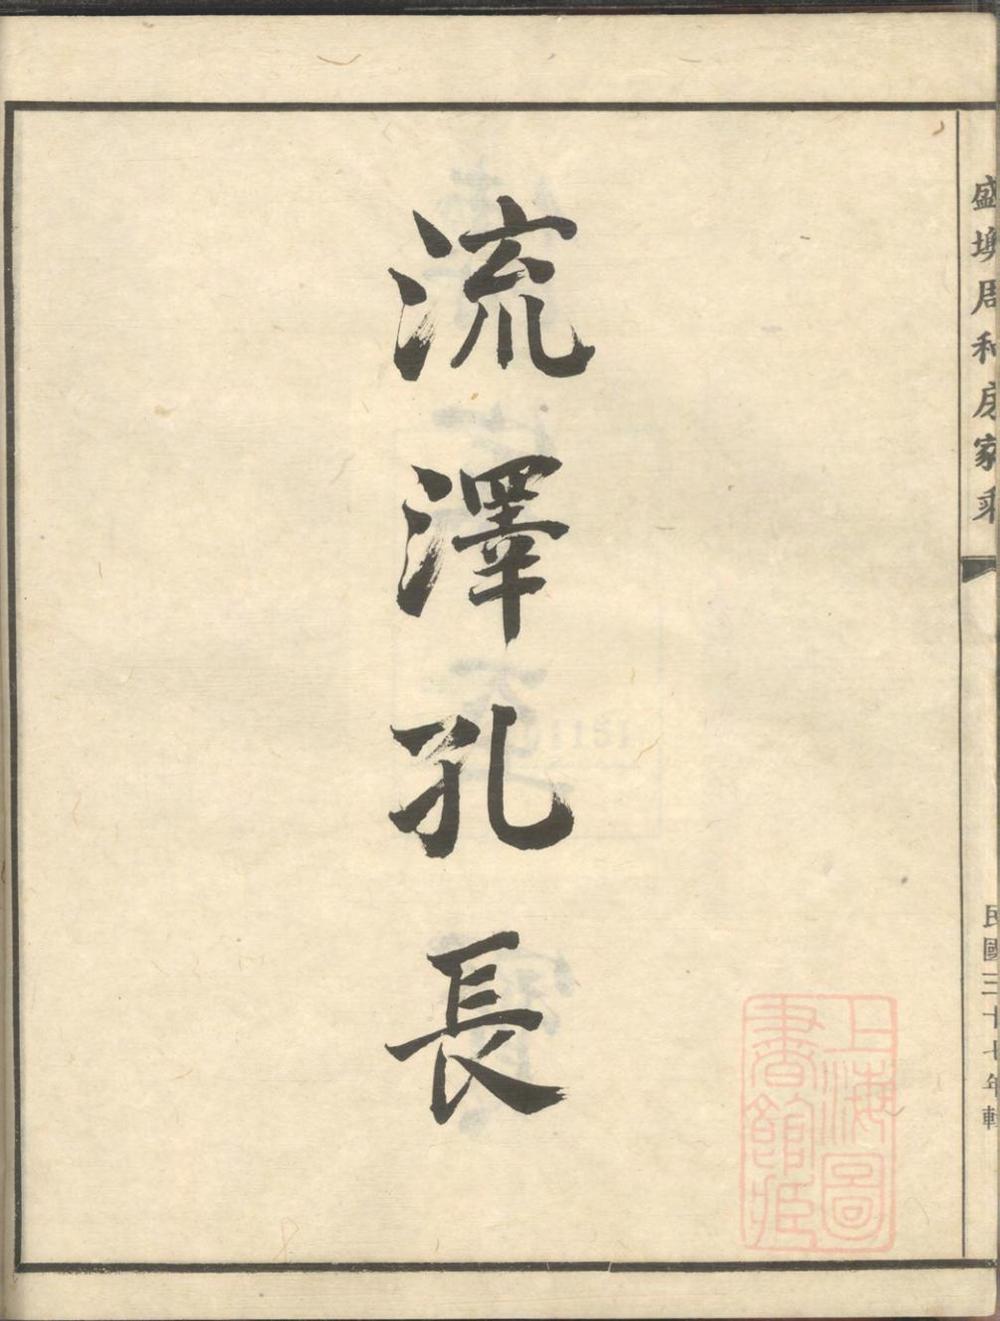 盛墺周和房家乘
民國三十七年輯
流澤孔長
上海圖
書館臧